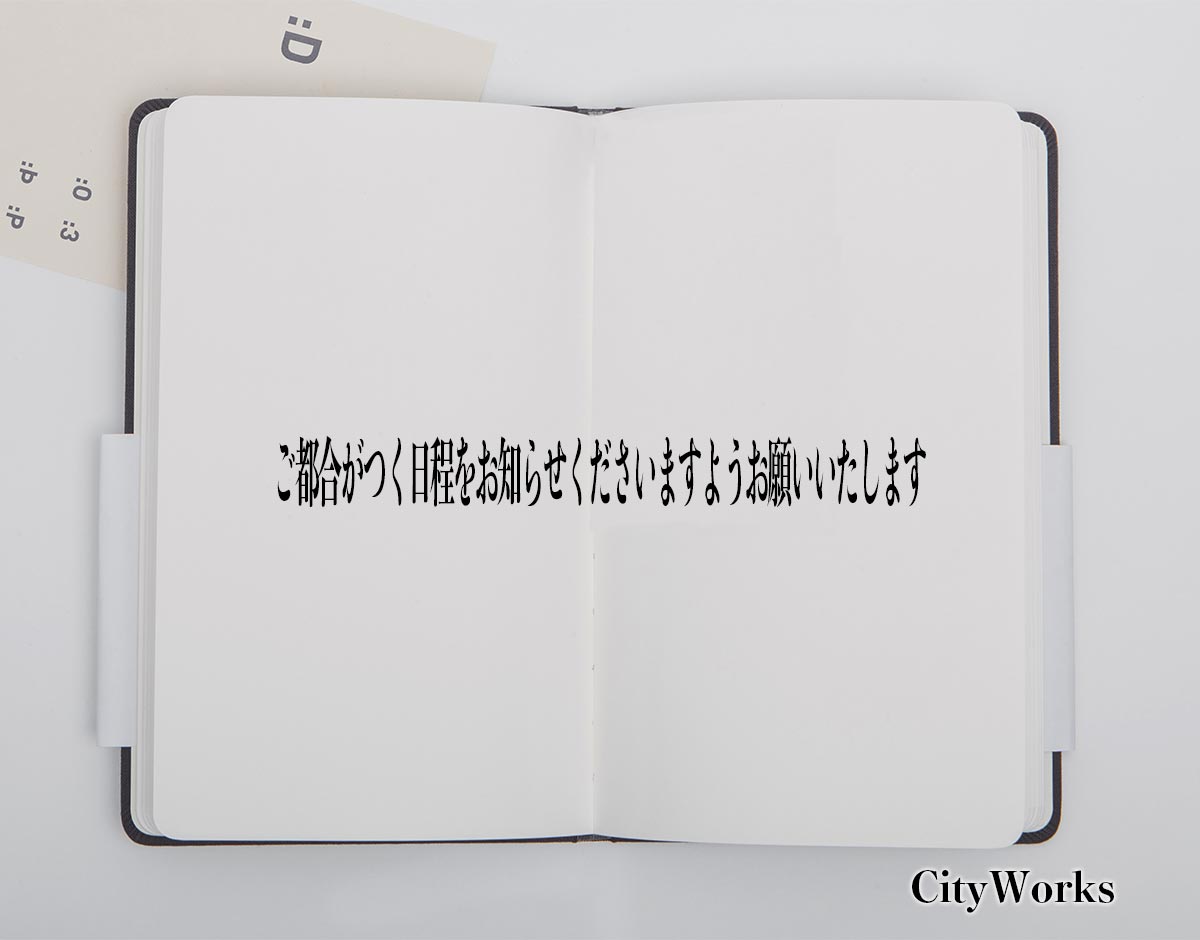 :D
:P
:O
:P
:3
ご都合がつく日程をお知らせくださいますようお願いいたします
CityWorks